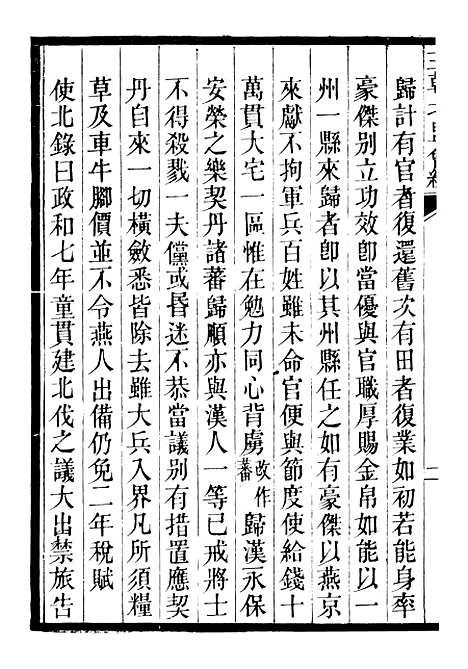 歸計有官者復還舊次有田者復業如初若能身率
豪傑別立功效卽當優與官職厚賜金帛如能以一
州一縣來歸者卽以其州縣任之如有豪傑以燕京
來獻不拘軍兵百姓雖未命官便與節度使給錢十
萬貫大宅一區惟在勉力同心背虜改作蕃歸漢永保
安榮之樂契丹諸蕃歸順亦與漢人一等已戒將士
不得殺戮一夫儻或昬迷不恭當議別有措置應契
丹自來一切橫斂悉皆除去雖大兵入界凡所須糧
草及車牛腳價並不令燕人出備仍免二年稅賦
使北錄曰政和七年童貫建北伐之議大出禁旅告